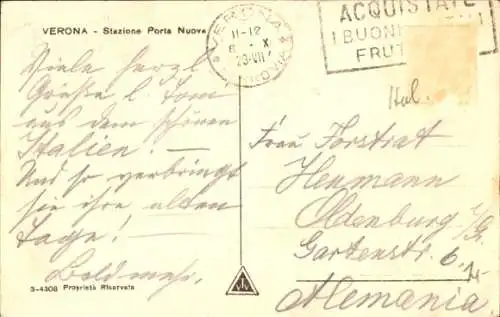 VERONA - Stazione Porta Nuova
VERONA
11-12
6 - X
23·VII
FERROVIA
ACQUISTATE
I BUONI
FRUT
Ital.
Viele herzl.
Grüße l. Tom
aus dem schönen
Italien. —
Und so verbringt
sie ihre alten
Tage!
Bald mehr.
Frau Forstrat
Heumann
Oldenburg i/O
Gartenstr. 6
Alemania
3-4308 Proprietà Riservata